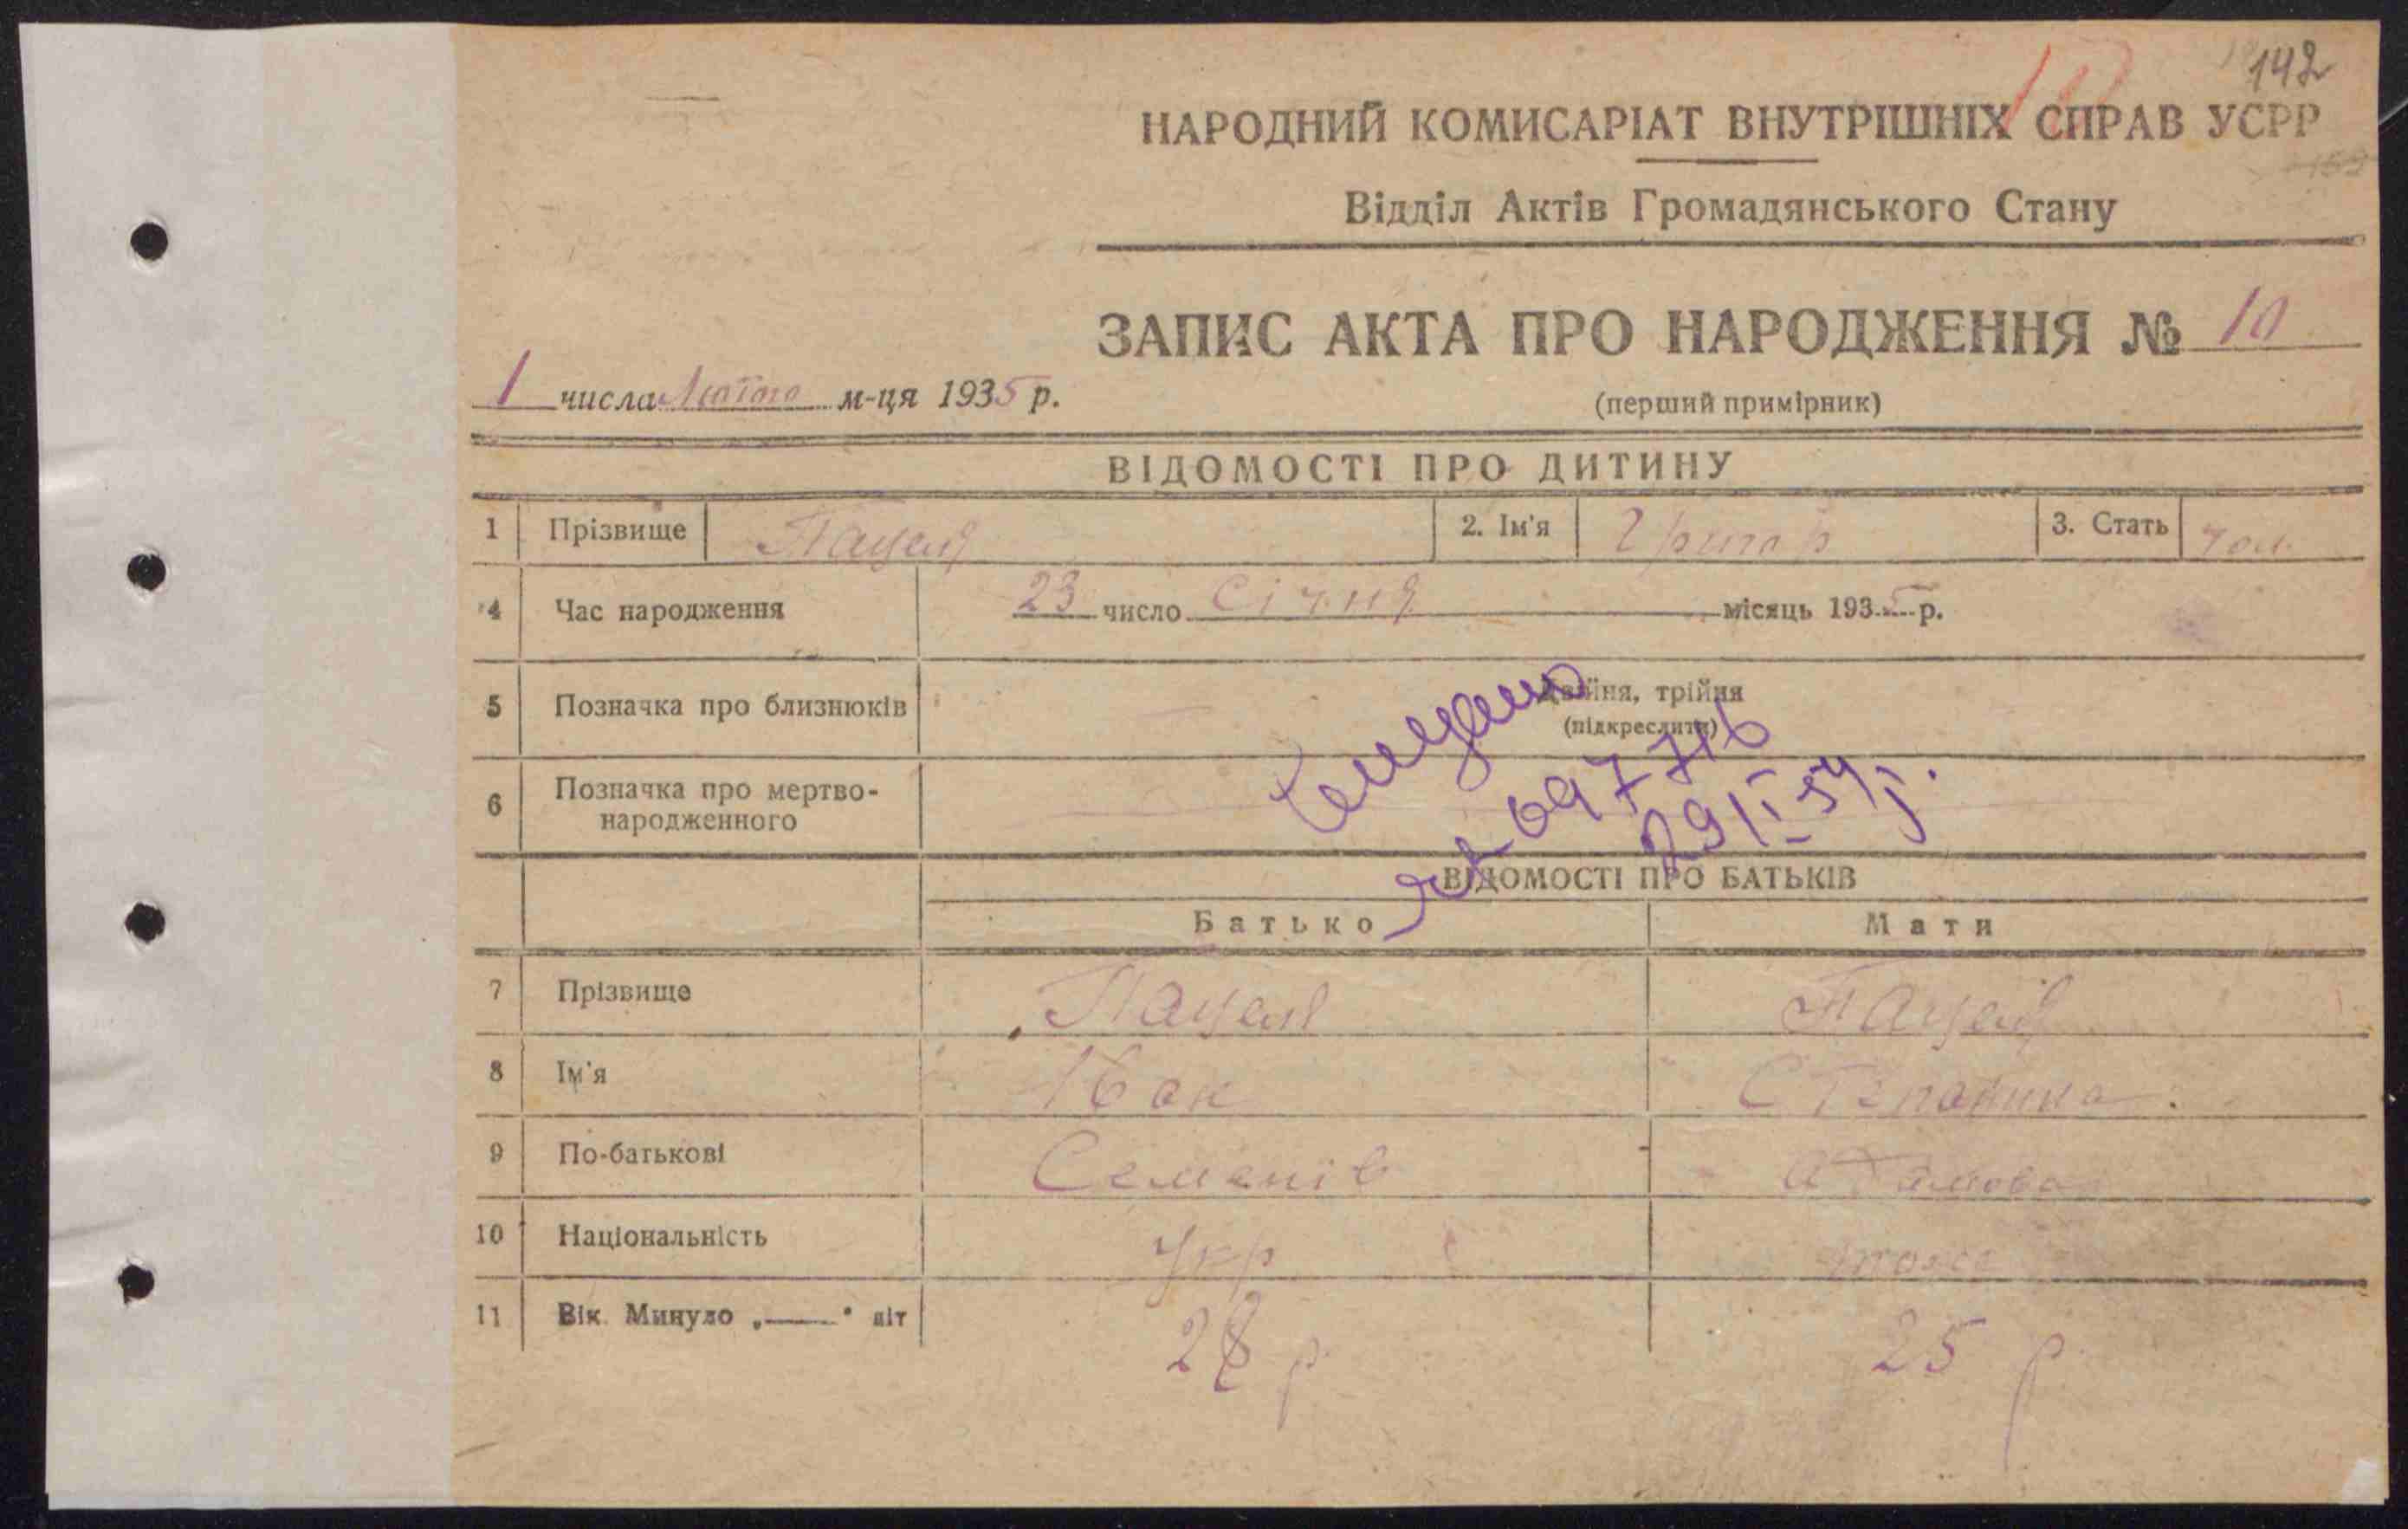 142
НАРОДНИЙ КОМИСАРІАТ ВНУТРІШНІХ СПРАВ УСРР
Відділ Актів Громадянського Стану
ЗАПИС АКТА ПРО НАРОДЖЕННЯ № 10
1 числа Лютого м-ця 1935 р.
(перший примірник)
ВІДОМОСТІ ПРО ДИТИНУ
1 Прізвище Пацеля 2. Ім'я Григор 3. Стать чол.
4 Час народження 23 число Січня місяць 1935 р.
5 Позначка про близнюків Двійня, трійня
(підкреслити)
6 Позначка про мертво-
народженного
697716
29/I 54 р.
ВІДОМОСТІ ПРО БАТЬКІВ
Батько Мати
7 Прізвище Пацеля Пацеля
8 Ім'я Іван Степанина
9 По-батькові Семенів
10 Національність Укр тоже
11 Вік. Минуло „——" літ 28 р 25 р